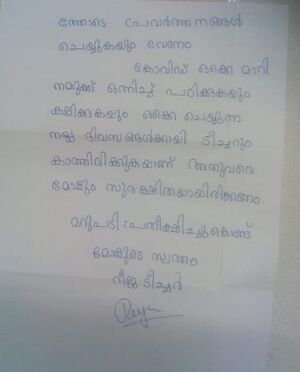 ത്തോടെ പ്രവർത്തനങ്ങൾ
ചെയ്യുകയും വേണം
കോവിഡ് ഒക്കെ മാറി
നമുക്ക് ഒന്നിച്ച് പഠിക്കുകയും
കളിക്കുകയും ഒക്കെ ചെയ്യുന്ന
നല്ല ദിവസങ്ങൾക്കായി ടീച്ചറും
കാത്തിരിക്കുകയാണ് അതുവരെ
മോളും സുരക്ഷിതയായിരിക്കണം
മറുപടി പ്രതീക്ഷിച്ചുകൊണ്ട്
മോളുടെ സ്വന്തം
റീജ ടീച്ചർ